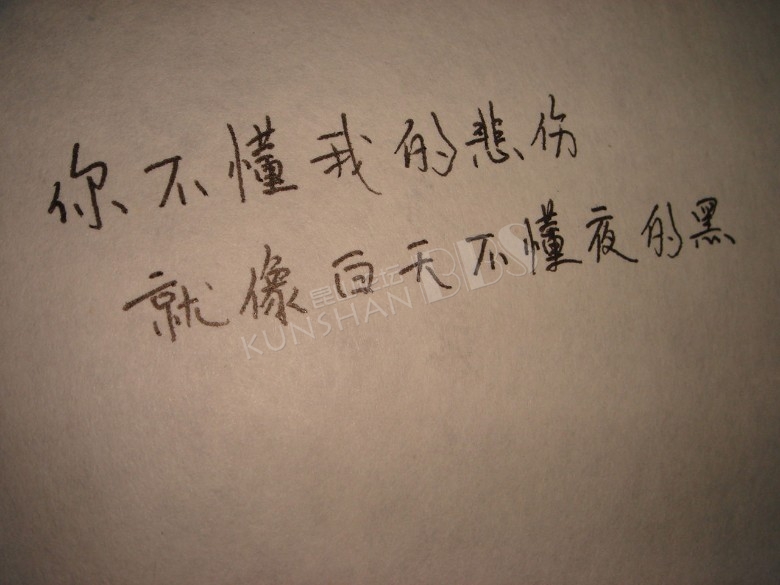 你不懂我的悲伤
就像白天不懂夜的黑
KUNSHAN BBS